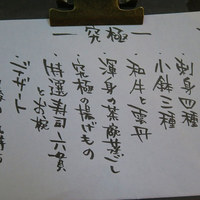 ― 究極 ―
刺身四種
小鉢三種
和牛と雲丹
渾身の茶碗蒸し
究極の揚げもの
特選寿司六貫
とお椀
デザート